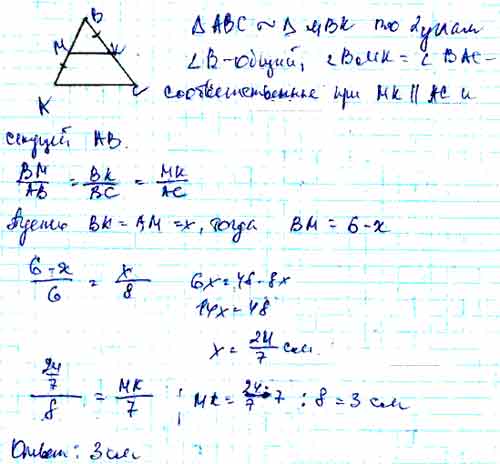 B
M K
K C
Δ ABC ~ Δ MBK по 2 углам
∠B - общий, ∠BMK = ∠BAC -
соответственные при MK || AC и
секущей AB.
BM/AB = BK/BC = MK/AC
BK = AM = x, тогда BM = 6 - x
(6 - x)/6 = x/8
6x = 48 - 8x
14x = 48
x = 24/7 см
(24/7)/8 = MK/7 ; MK = 24/7 · 7 : 8 = 3 см
Ответ: 3 см